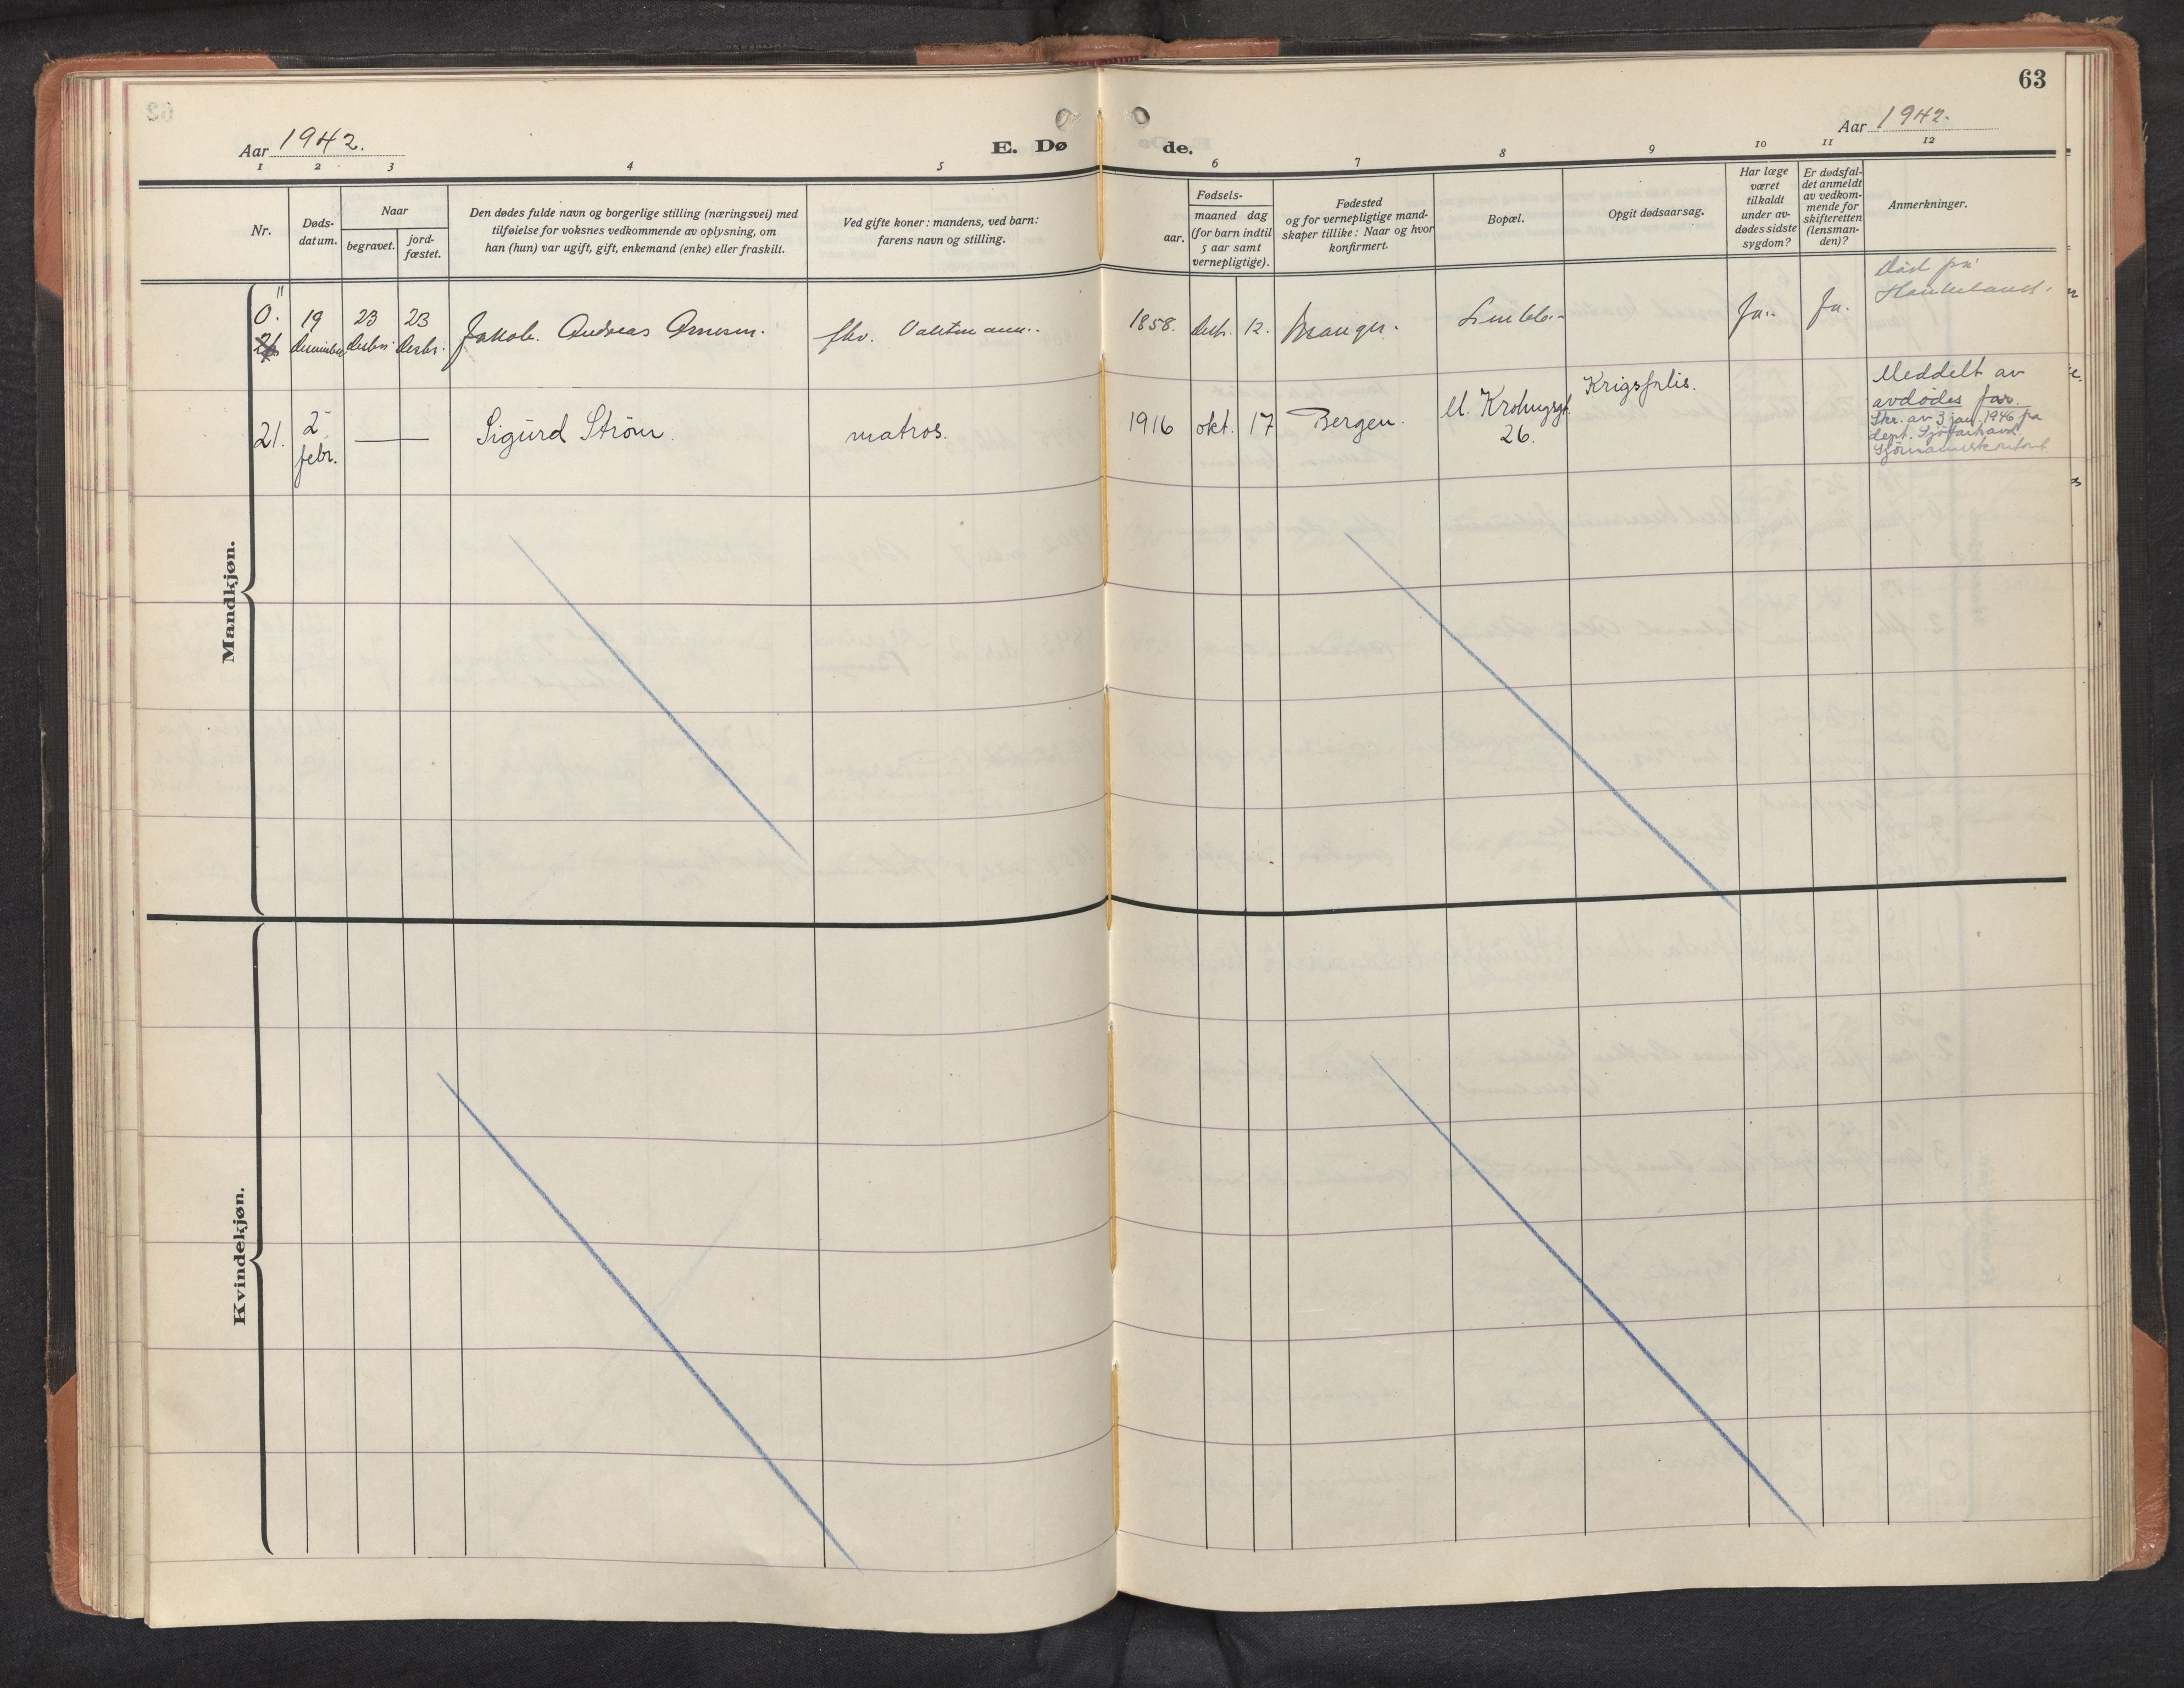 63
Aar 1942.
E. Døde.
Aar 1942.
1 2 3 4 5 6 7 8 9 10 11 12
Nr.
Døds-
datum.
Naar
begravet.
jord-
fæstet.
Den dødes fulde navn og borgerlige stilling (næringsvei) med
tilføielse for voksnes vedkommende av oplysning, om
han (hun) var ugift, gift, enkemand (enke) eller fraskilt.
Ved gifte koner: mandens, ved barn:
farens navn og stilling.
Fødsels-
aar.
maaned dag
(for barn indtil
5 aar samt
vernepligtige).
Fødested
og for vernepligtige mand-
skaper tillike: Naar og hvor
konfirmert.
Bopæl.
Opgit dødsaarsag.
Har læge
været
tilkaldt
under av-
dødes sidste
sygdom?
Er dødsfal-
det anmeldt
av vedkom-
mende for
skifteretten
(lensman-
den)?
Anmerkninger.
Mandkjøn.
0. 19 23 23 Jakob Andreas Arnesen. fhv. 1858. 12. Manger. Ja. Ja. Død på
Haukeland.
21. 2 febr. Sigurd Strøm. matros. 1916 okt. 17 Bergen. M. Krohngsgt. 26. Krigsforlis. Meddelt av
avdødes far.
Skr. av 3 jan. 1946 fra
dept. Sjøfartsavd.
Sjømannskontoret
Kvindekjøn.